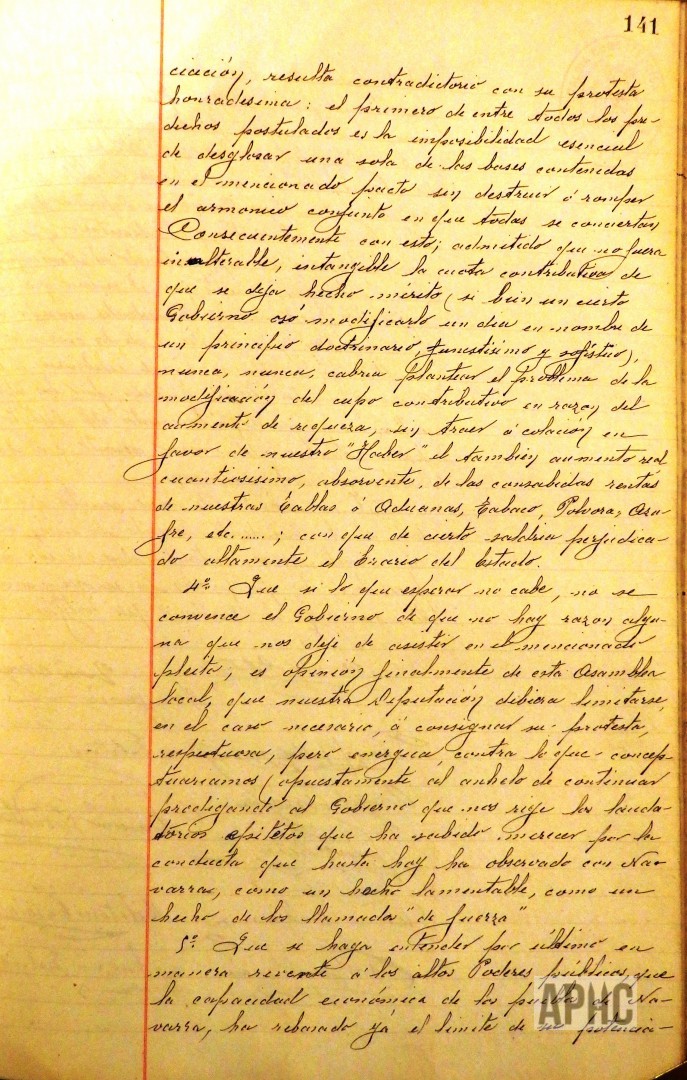 141
ciación, resulta contradictorio con su protesta
honradísima: el primero de entre todos los pre-
dichos postulados es la imposibilidad esencial
de desglosar una sola de las bases contenidas
en el mencionado pacto sin destruir ó romper
el armonico conjunto en que todas se conciertan
Consecuentemente con esto; admitido que no fuera
inalterable, intangible la cuota contributiva de
que se deja hecho mérito (si bien un cierto
Gobierno osó modificarlo un dia en nombre de
un principio doctrinario, funestísimo y sofístico),
nunca, nunca, cabria plantear el problema de la
modificación del cupo contributivo en razon del
aumento de riqueza, sin traer á colación en
favor de nuestro "Haber" el tambien aumento real
cuantiosisimo, absorvente, de las consabidas rentas
de nuestras Tablas ó Aduanas, Tabaco, Polvora, Azu-
fre, etc......; con que de cierto saldria perjudica-
do altamente el Erario del Estado.
4º Que si lo que esperar no cabe, no se
convence el Gobierno de que no hay razon algu-
na que nos deje de asistir en el mencionado
pleito, es opinión finalmente de esta Asamblea
local, que nuestra Diputación debiera limitarse,
en el caso necesario, á consignar su protesta,
respetuosa, pero enérgica, contra lo que concep-
tuariamos (opuestamente al anhelo de continuar
prodigando al Gobierno que nos rige los lauda-
torios epitétos que ha sabido merecer por la
conducta que hasta hoy ha observado con Na-
varra, como un hecho lamentable, como un
hecho de los llamados "de fuerza"
5º Que se haga entender por último en
manera reverente á los altos Poderes públicos, que
la capacidad económica de los pueblos de Na-
varra, ha rebasado yá el limite de su potencia-
APHC